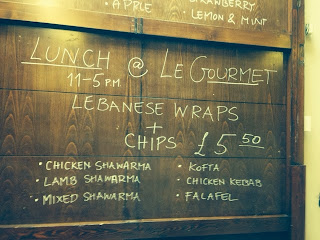 • APPLE STRAWBERRY
• LEMON & MINT
LUNCH @ LE GOURMET
11-5 P.M.
LEBANESE WRAPS
+
CHIPS £5.50
• CHICKEN SHAWARMA • KOFTA
• LAMB SHAWARMA • CHICKEN KEBAB
• MIXED SHAWARMA • FALAFEL